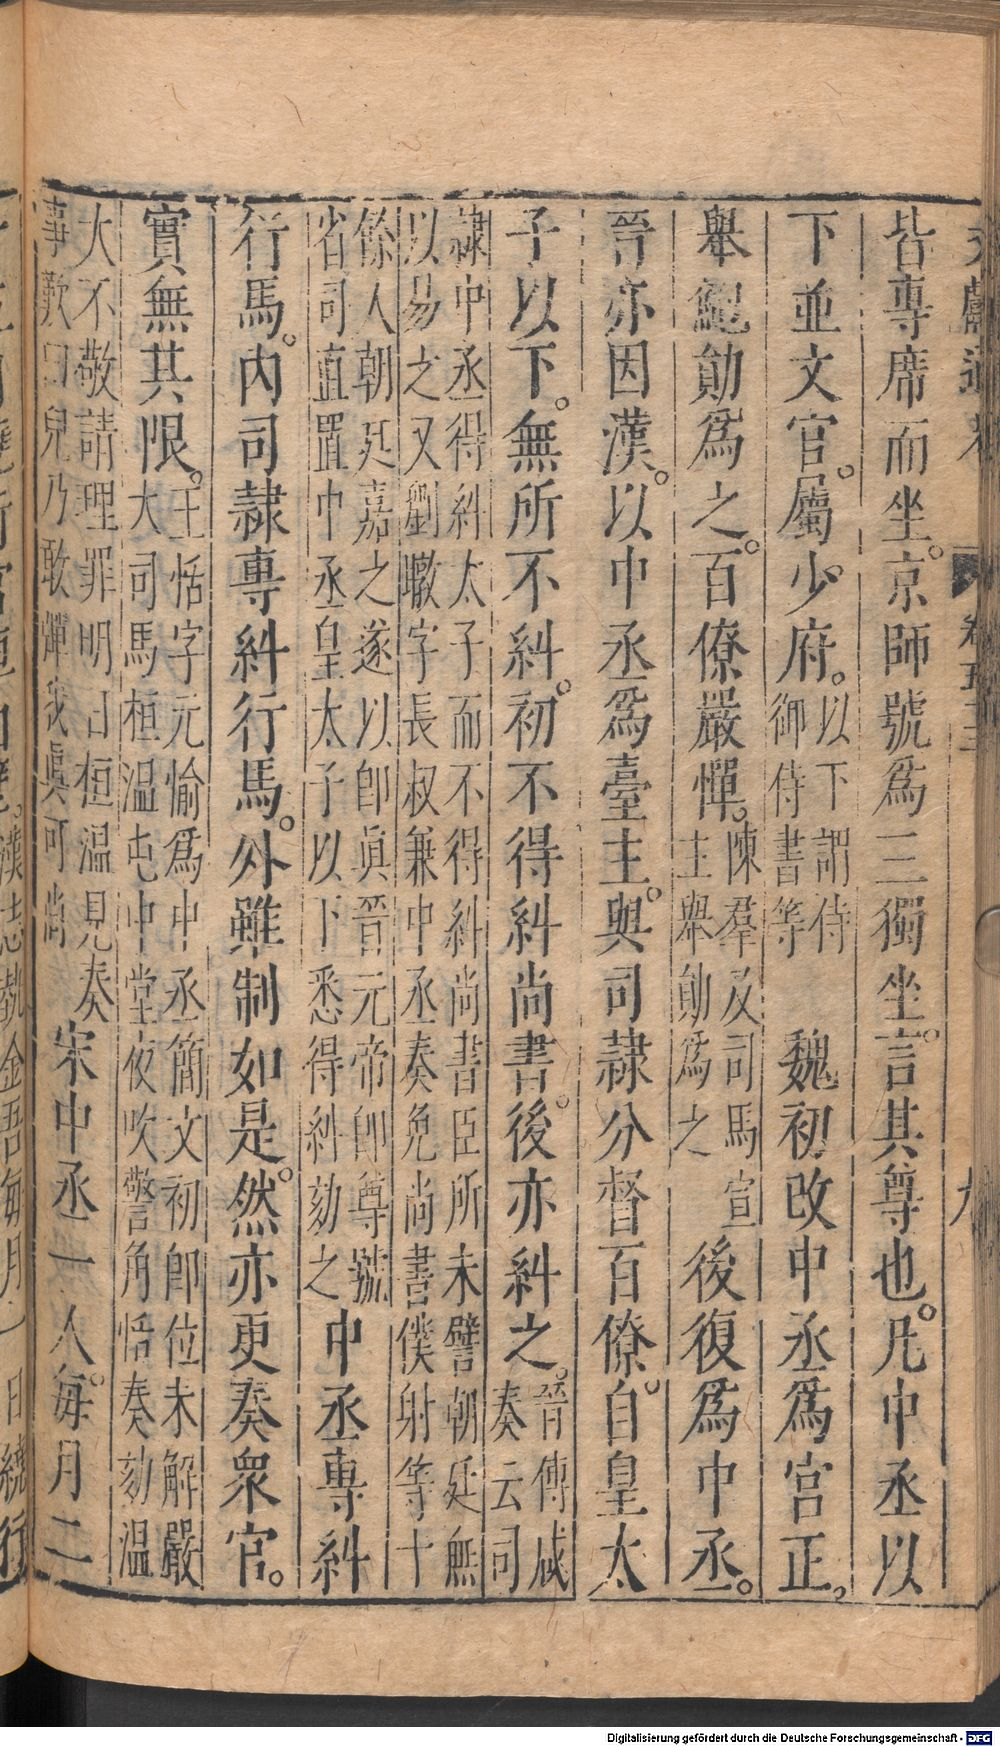 文獻通考 卷五十三 九
皆專席而坐。京師號爲三獨坐。言其尊也。凡中丞以
下並文官。屬少府。以下謂侍御侍書等 魏初改中丞爲宮正。
舉鮑勛爲之。百僚嚴憚。陳羣及司馬宣主舉勛爲之 後復爲中丞。
晉亦因漢。以中丞爲臺主。與司隸分督百僚。自皇太
子以下。無所不糾。初不得糾尚書。後亦糾之。晉傳咸奏云司
隸中丞得糾太子而不得糾尚書臣所未譬朝廷無
以易之又劉暾字長叔兼中丞奏免尚書僕射等十
餘人朝廷嘉之遂以卽眞晉元帝卽尊號
省司直置中丞皇太子以下悉得糾劾之 中丞專糾
行馬。內司隸專糾行馬。外雖制如是。然亦更奏衆官。
實無其限。王恬字元愉爲中丞簡文初卽位未解嚴
大司馬桓溫屯中堂夜吹警角恬奏劾溫
大不敬請理罪明日桓溫見奏
事歎曰兒乃敢彈我眞可尚 宋中丞一人。每月二
漢志執金吾每月 日繞行
Digitalisierung gefördert durch die Deutsche Forschungsgemeinschaft - DFG